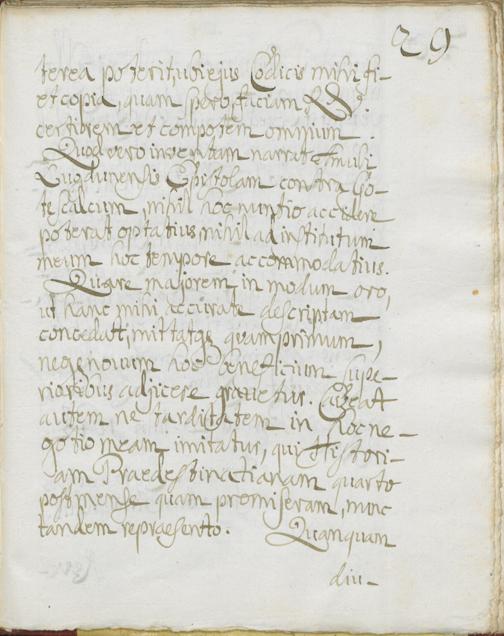 29
terea poterit ubi ejus Codicis mihi fi-
et copia, quam spero, faciam
certiorem et compotem omnium.
Quod vero inventam narrat Amuli
Lugdunensis Epistolam contra Go-
tescalcum, nihil hoc nuntio accidere
poterat optatius, nihil ad institutum
meum hoc tempore accommodatius.
Quare majorem in modum oro,
ut hanc mihi accurate descriptam
concedatt, mittatqz quamprimum,
neqz novum hoc beneficium supe-
rioribus adjicere gravetur. Caveatt
autem ne tarditatem in hoc ne-
gotio meam imitatur, qui Histori-
am Praedestinatianam quarto
post mense quam promiseram, nunc
tandem repraesento. Quanquam
diu-